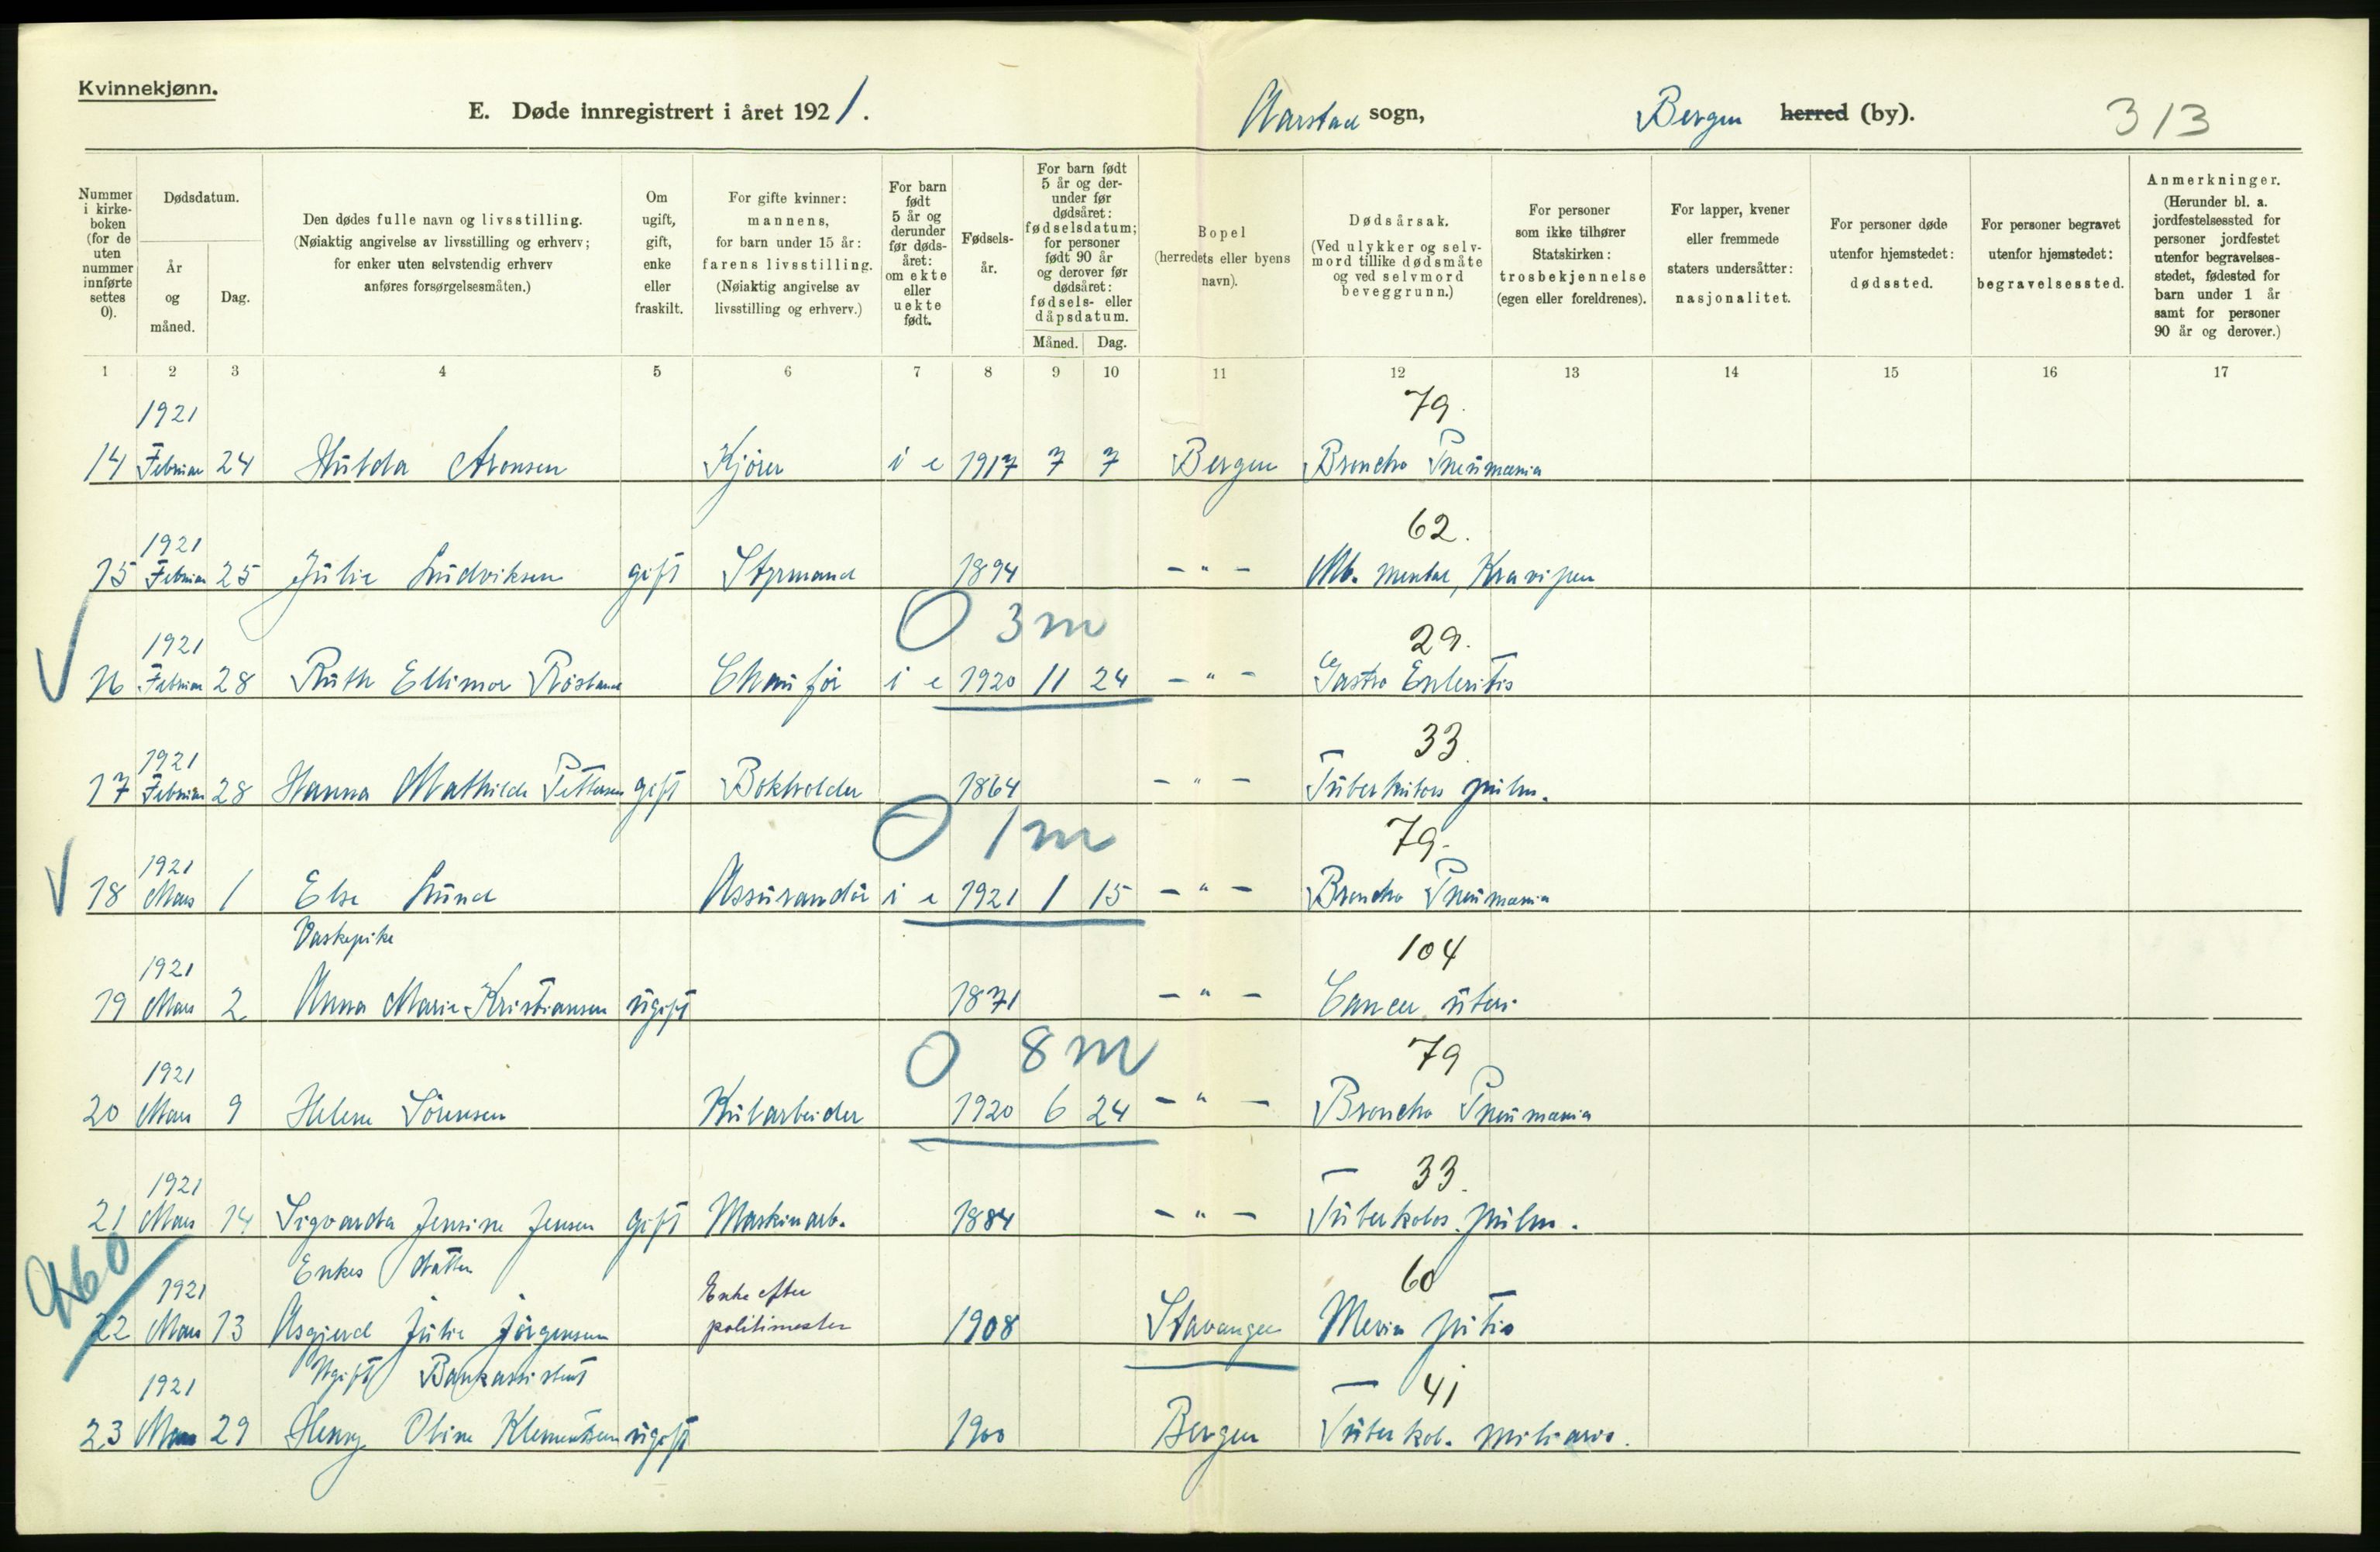 Kvinnekjønn.
E. Døde innregistrert i året 1921.
Aarstad sogn,
Bergen herred (by).
313
Nummer i kirke-boken (for de uten nummer innførte settes 0).
Dødsdatum.
År og måned.
Dag.
Den dødes fulle navn og livsstilling. (Nøiaktig angivelse av livsstilling og erhverv; for enker uten selvstendig erhverv anføres forsørgelsesmåten.)
Om ugift, gift, enke eller fraskilt.
For gifte kvinner: mannens, for barn under 15 år: farens livsstilling. (Nøiaktig angivelse av livsstilling og erhverv.)
For barn født 5 år og derunder før døds-året: om ekte eller uekte født.
Fødsels-år.
For barn født 5 år og der-under før dødsåret: fødselsdatum; for personer født 90 år og derover før dødsåret: fødsels- eller dåpsdatum.
Måned. Dag.
Bopel (herredets eller byens navn).
Dødsårsak. (Ved ulykker og selv-mord tillike dødsmåte og ved selvmord beveggrunn.)
For personer som ikke tilhører Statskirken: trosbekjennelse (egen eller foreldrenes).
For lapper, kvener eller fremmede staters undersåtter: nasjonalitet.
For personer døde utenfor hjemstedet: dødssted.
For personer begravet utenfor hjemstedet: begravelsessted.
Anmerkninger. (Herunder bl. a. jordfestelsessted for personer jordfestet utenfor begravelses-stedet, fødested for barn under 1 år samt for personer 90 år og derover.)
1 2 3 4 5 6 7 8 9 10 11 12 13 14 15 16 17
1921 79.
14 Februar 24 Hulda Aronsen Kjører i e 1917 7 7 Bergen Broncho Pneumania
1921 62.
15 Februar 25 Julie Ludviksen gift Styrmand 1894 - " - Mb. mental,
0 3 m
1921 29.
16 Februar 28 Ruth Ellimor Chauför i e 1920 11 24 - " - Gastro Enteritis
1921 33
17 Februar 28 Hanna Mathilde Pettersen gift Bokholder 1864 - " - Tuberkulos pulm.
0 1 m
1921 79.
18 Mars 1 Else Lund Assurandör i e 1921 1 15 - " - Broncho Pneumania
Vaskepike
1921 104
19 Mars 2 Anna Marie Kristiansen ugift 1871 - " - Cancer uteri
0 8 m
1921 79
20 Mars 9 Helene Sörensen Kularbeider 1920 6 24 - " - Broncho Pneumania
1921 33.
21 Mars 14 Sigvarda Jensine Jensen gift Maskinarb. 1884 - " - Tuberkolos. pulm.
Enkes datter
960
1921 Enke efter 60
22 Mars 13 Asgjerd Julie Jörgensen politimester 1908 Stavanger
Ugift Bankassistent
1921 41
23 Mars 29 Henny Oline Klementsen ugift 1900 Bergen Tuberkol. miliaris.